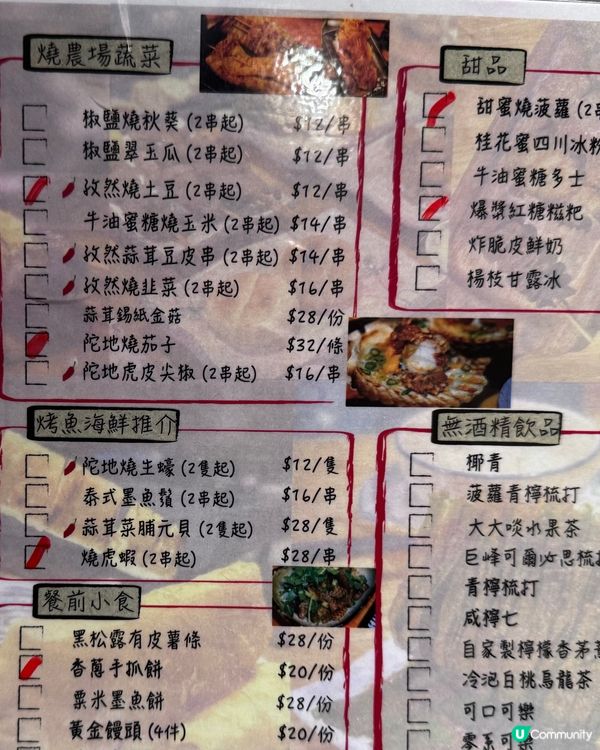 燒農場蔬菜
椒鹽燒秋葵 (2串起) $12/串
椒鹽翠玉瓜 (2串起) $12/串
孜然燒土豆 (2串起) $12/串
牛油蜜糖燒玉米 (2串起) $14/串
孜然蒜茸豆皮串 (2串起) $14/串
孜然燒韭菜 (2串起) $16/串
蒜茸錫紙金菇 $28/份
陀地燒茄子 $32/條
陀地虎皮尖椒 (2串起) $16/串
烤魚海鮮推介
陀地燒生蠔 (2隻起) $12/隻
泰式墨魚鬚 (2串起) $16/串
蒜茸菜脯元貝 (2隻起) $28/隻
燒虎蝦 (2串起) $28/串
餐前小食
黑松露有皮薯條 $28/份
香蔥手抓餅 $20/份
粟米墨魚餅 $28/份
黃金饅頭 (4件) $20/份
甜品
甜蜜燒菠蘿 (2
桂花蜜四川冰粉
牛油蜜糖多士
爆漿紅糖糍粑
炸脆皮鮮奶
楊枝甘露冰
無酒精飲品
椰青
菠蘿青檸梳打
大大啖水果茶
巨峰可爾必思梳打
青檸梳打
咸檸七
自家製檸檬香茅
冷泡白桃烏龍茶
可口可樂
零系可樂
U Community